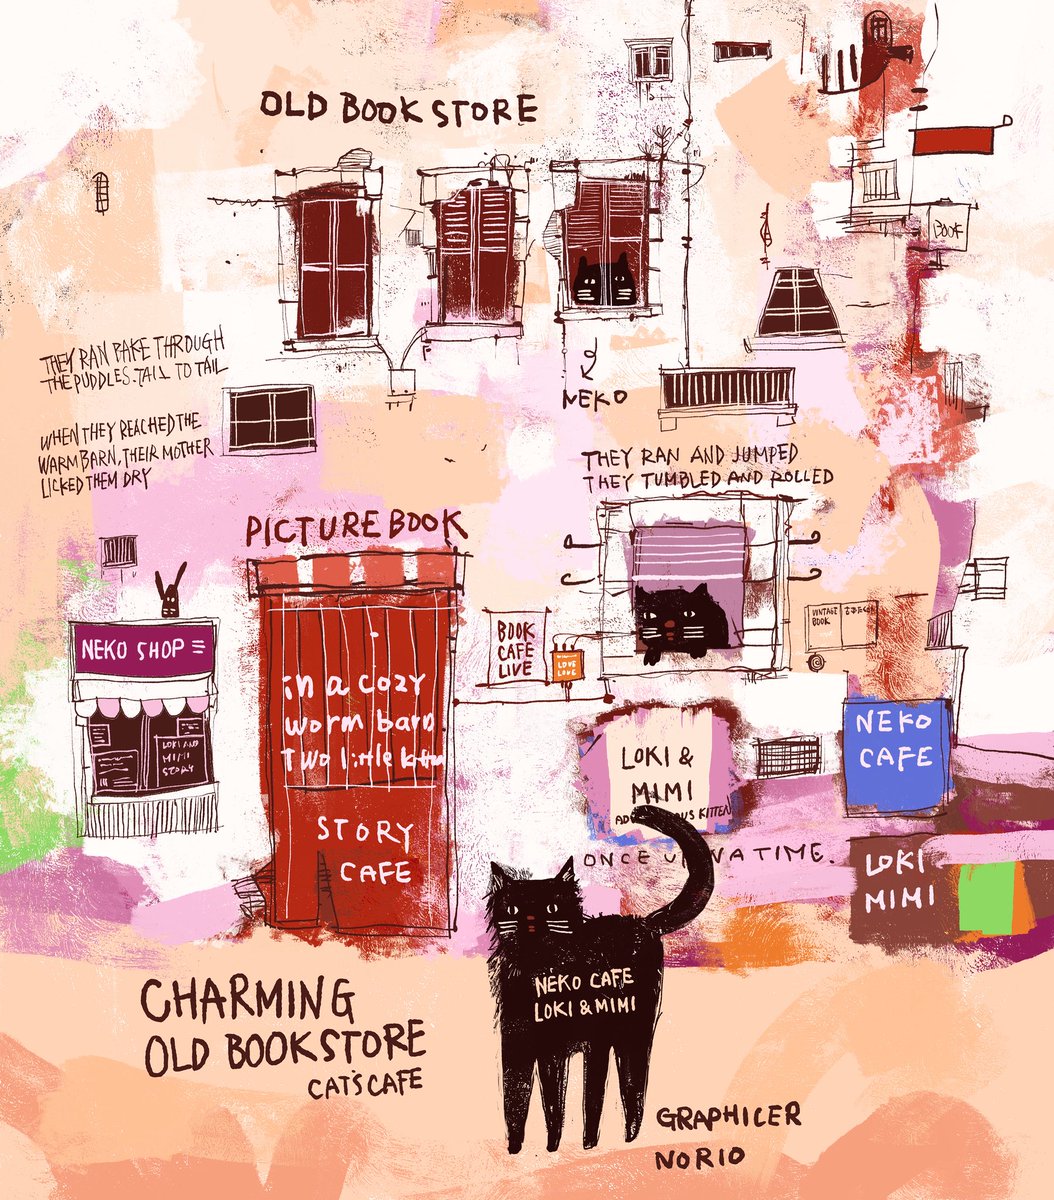 OLD BOOK STORE
BOOK
THEY RAN BAKE THROUGH
THE PUDDLES. TAIL TO TAIL
NEKO
WHEN THEY REACHED THE
WARM BARN, THEIR MOTHER
LICKED THEM DRY
THEY RAN AND JUMPED
THEY TUMBLED AND ROLLED
PICTURE BOOK
NEKO SHOP
BOOK
CAFE
LIVE
LOVE
LOVE
VINTAGE
BOOK
in a cozy
worm barn.
Two little
LOKI AND
MIMI
STORY
NEKO
CAFE
LOKI &
MIMI
KITTEN
STORY
CAFE
ONCE A TIME.
LOKI
MIMI
NEKO CAFE
LOKI & MIMI
CHARMING
OLD BOOKSTORE
CAT'S CAFE
GRAPHICER
NORIO